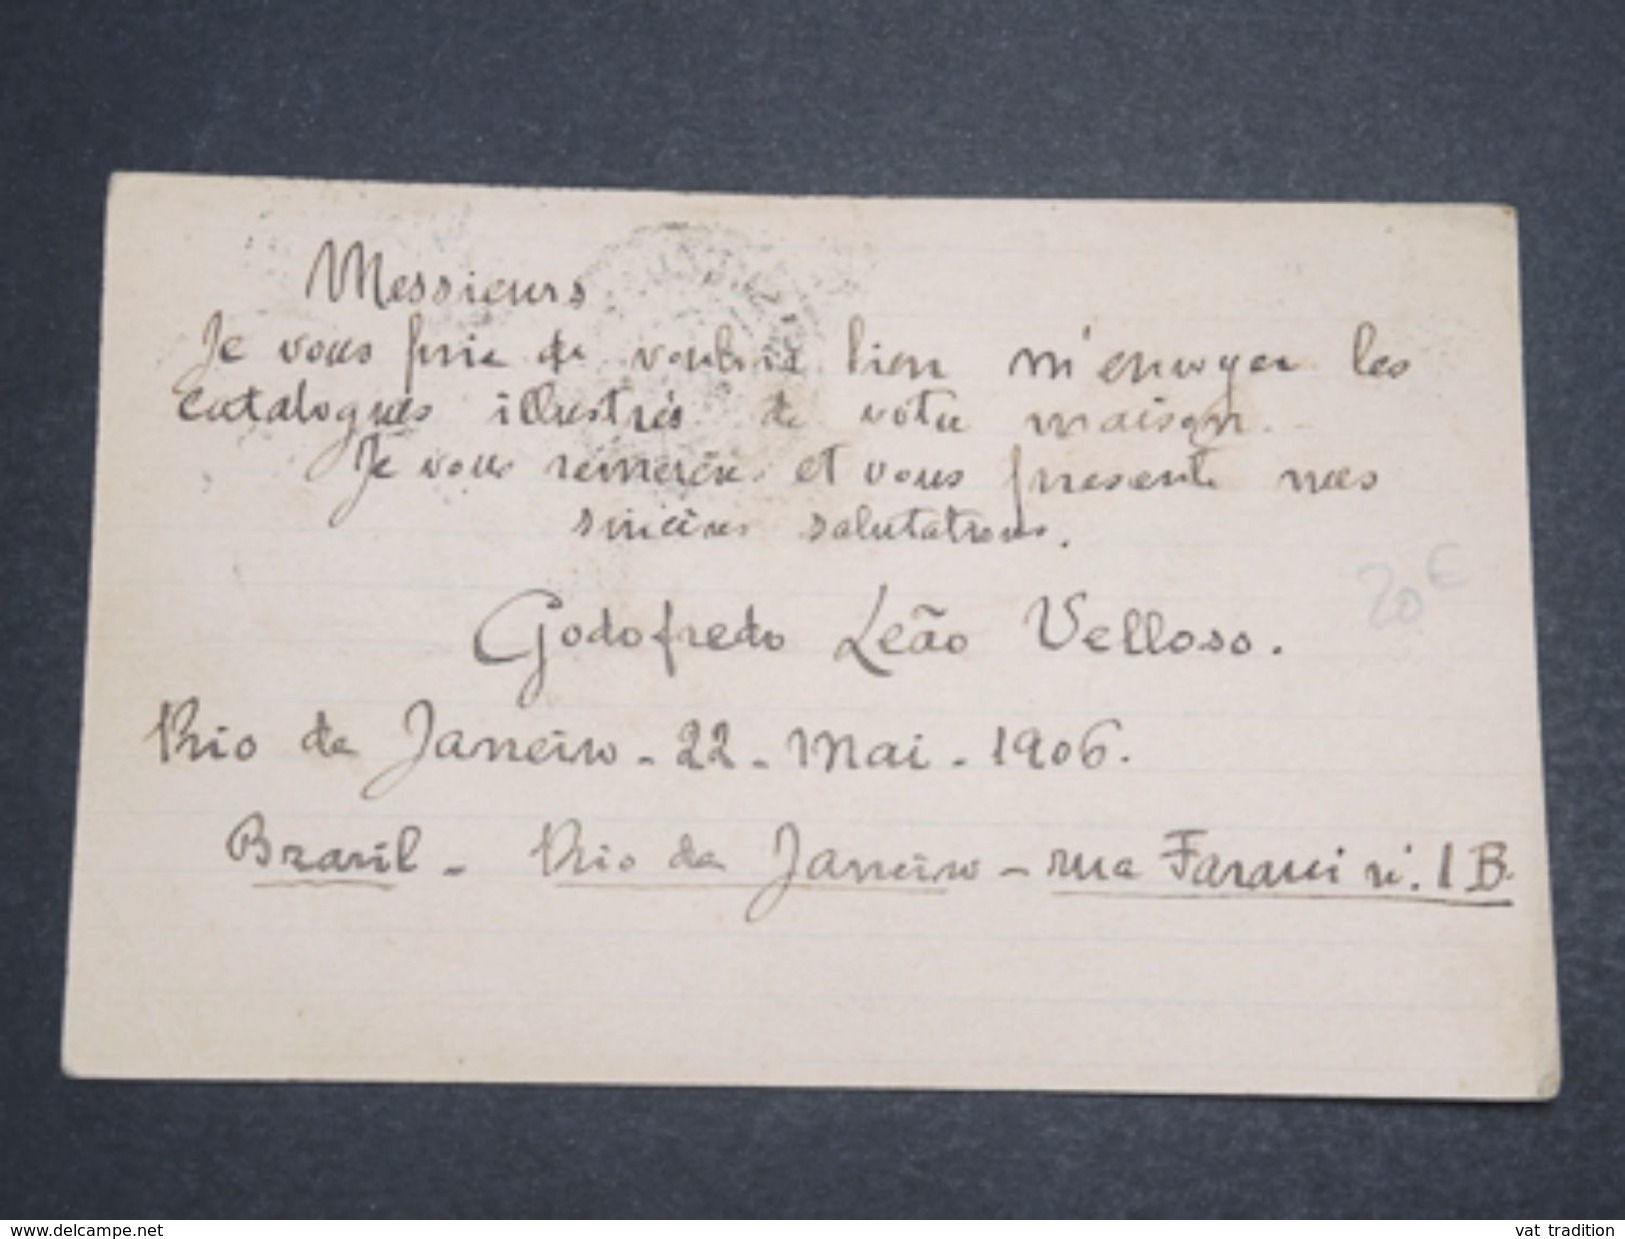 Messieurs
Je vous prie de vouloir bien m'envoyer les
catalogues illustrés de votre maison.
Je vous remercie et vous presente mes
sincères salutations.
Godofredo Leão Velloso.
20 €
Rio de Janeiro - 22 - Mai - 1906.
Brazil - Rio de Janeiro - rua Farani nº. 1 B.
www.delcampe.net
vat tradition